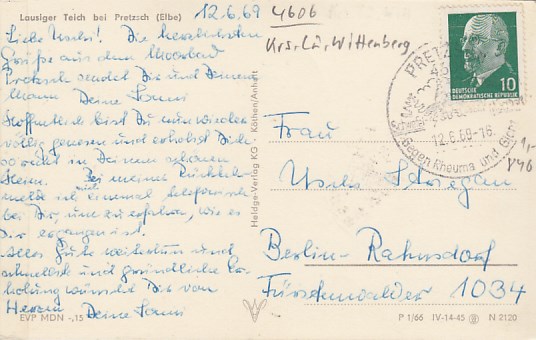 Lausiger Teich bei Pretzsch (Elbe)
12.6.69
4606
Krs. Lu. Wittenberg
Liebe Uschi! Die herzlichsten
Grüße aus dem Moorbad
Pretzsch sendet Dir und Deinem
Mann Deine
Hoffentlich bist Du nun wieder
völlig genesen und erholst Dich
so recht in Deinem schönen
Heim. Bei meiner Rückkehr
melde ich mich einmal telefonisch
bei Dir, um zu erfahren, wie es
Dir ergangen ist.
Alles Gute weiterhin und
schnellste und gründliche Er-
holung wünscht Dir von
Herzen Deine
EVP MDN -,15
Heldge-Verlag KG · Köthen/Anhalt
DEUTSCHE
DEMOKRATISCHE REPUBLIK
10
PRETZ
12.6.69-16
Gegen Rheuma und Gicht
1,-
Frau
Berlin-Rahnsdorf
Fürstenwalder 1034
P 1/66 IV-14-45 N 2120